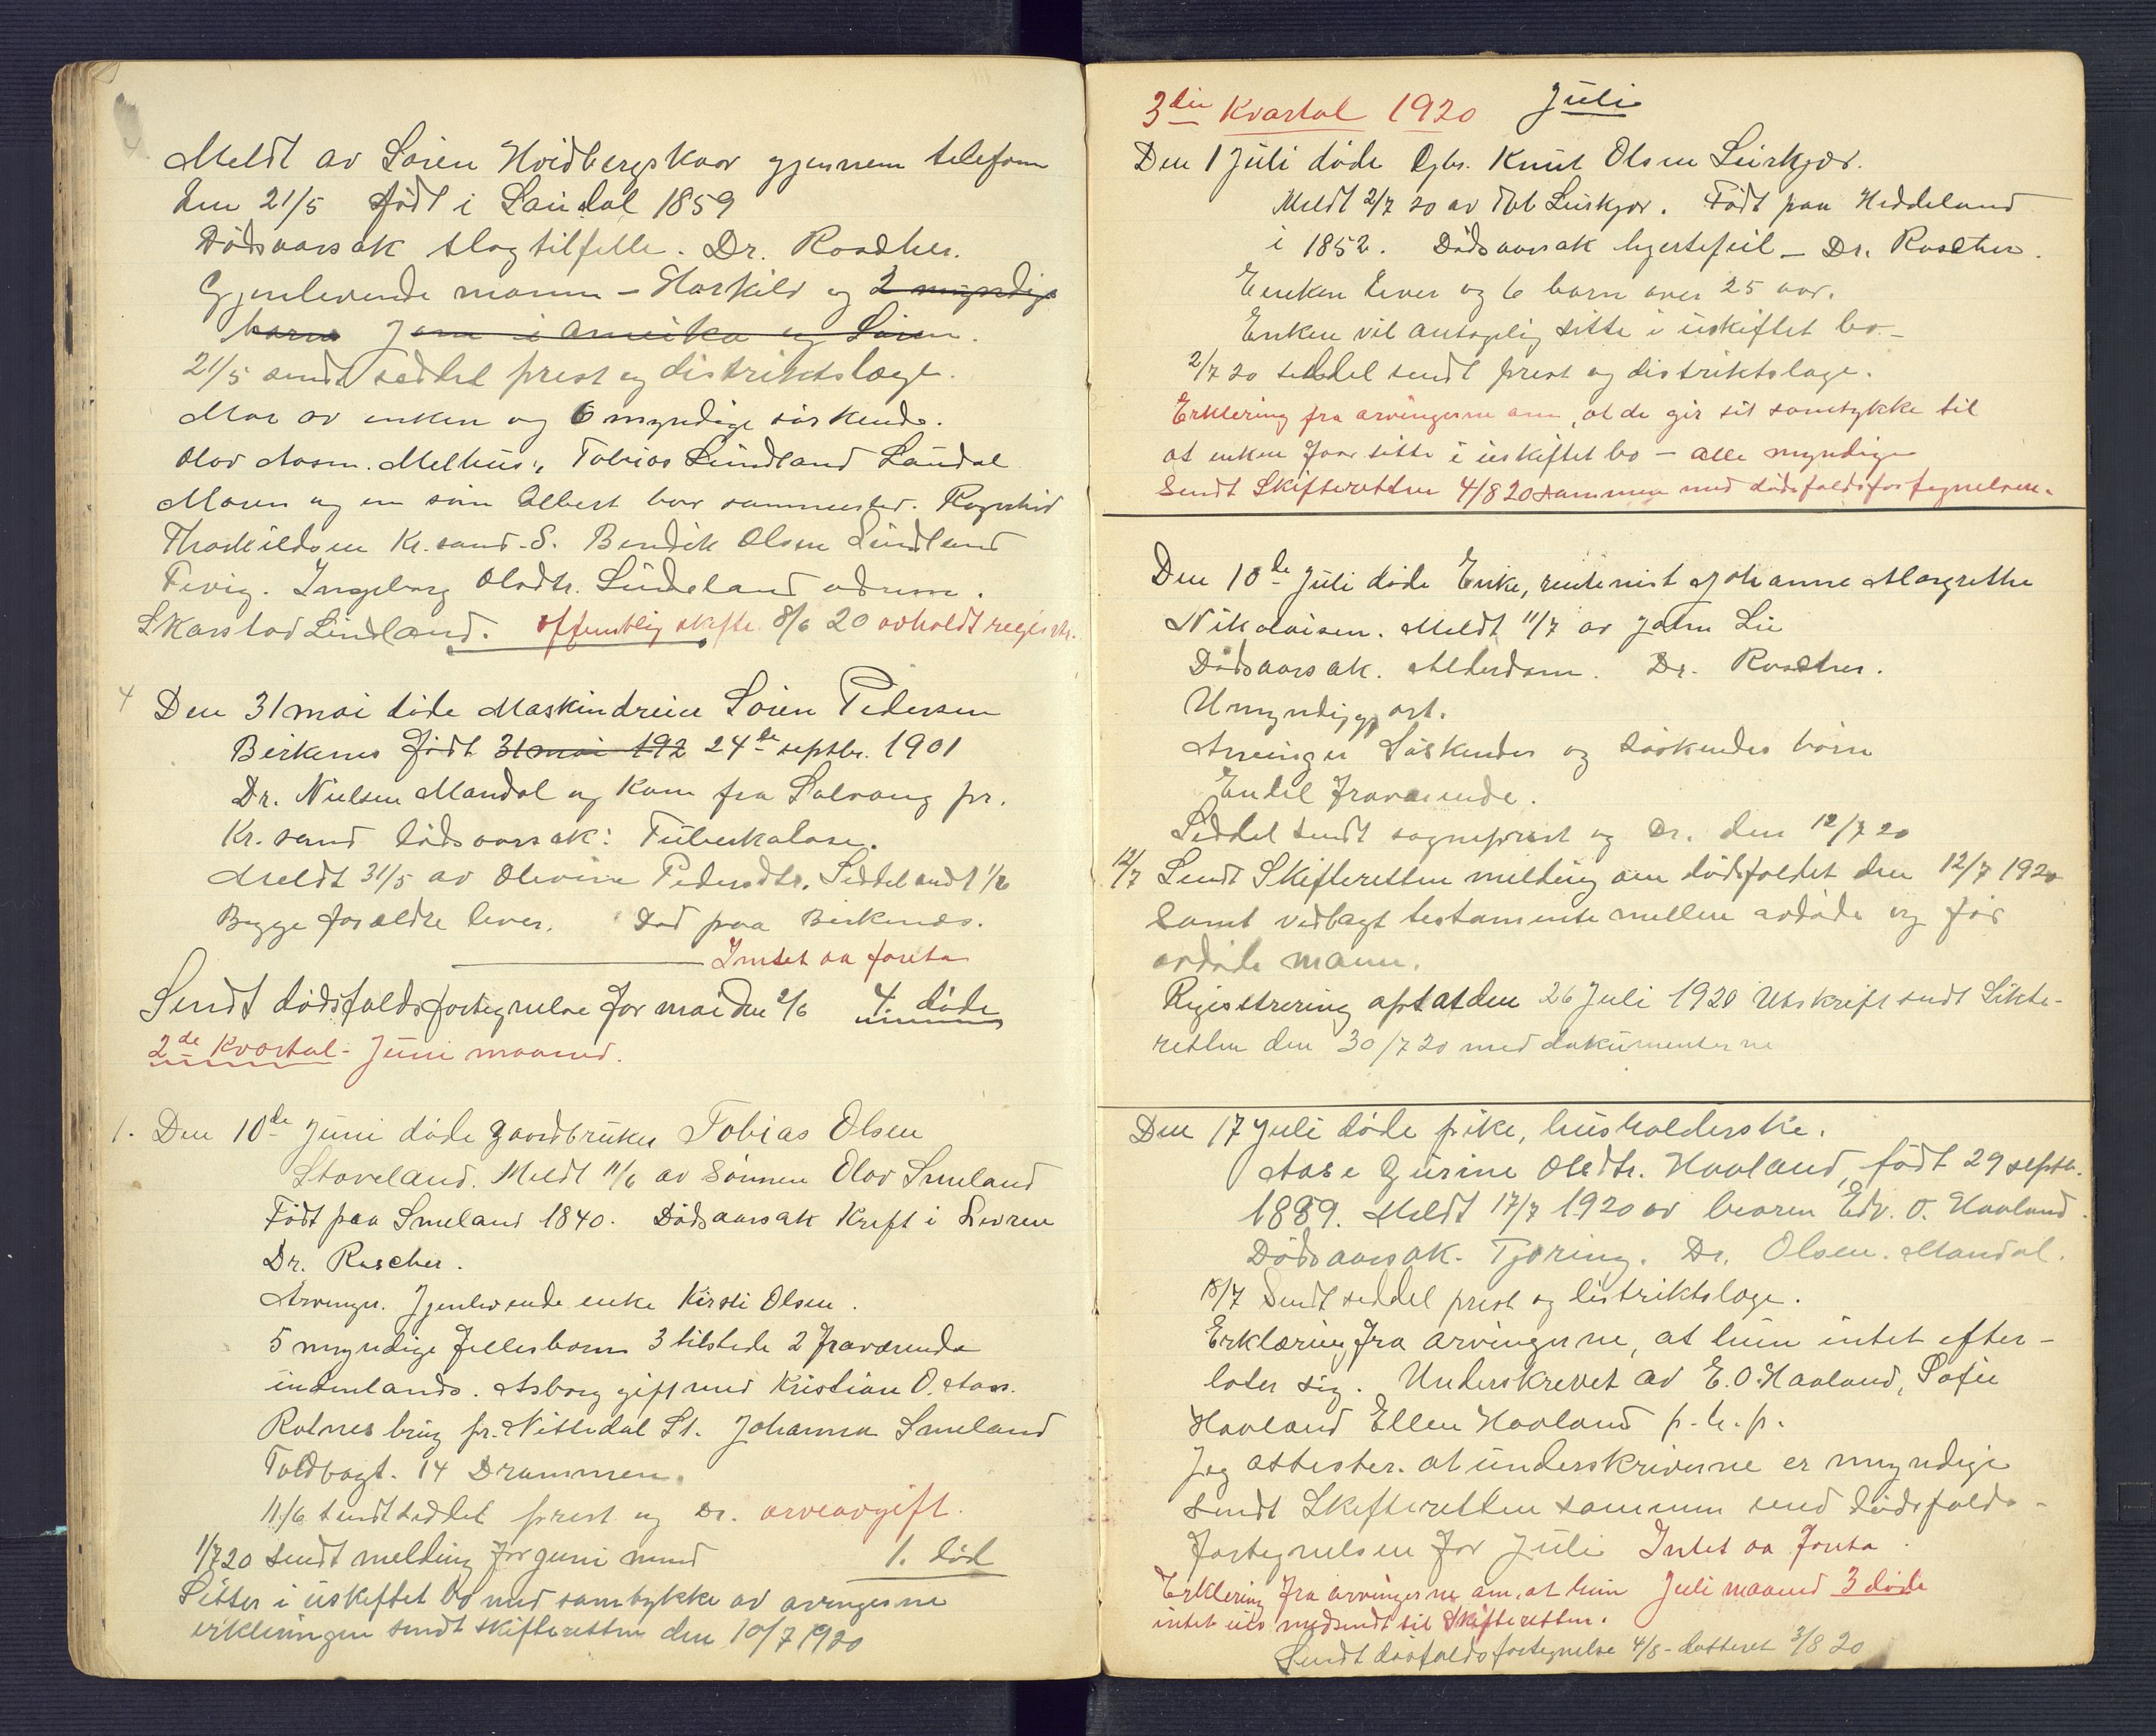 Meldt av Søren Hvidbergskaar gjennem telefonen
den 21/5 født i Laudal 1859
Dødsaarsak slagtilfelle. Dr. Roscher.
Gjenlevende mann - Harkild og 2 myndige
barn Jens i Amerika og Søren.
21/5 sendt seddel prest og distriktslæge.
Mor av enken og 6 myndige søskende.
Olav Aasm. Melhus, Tobias Lindland Laudal
Maren og en søn Albert bor sammested.
Thorkildsen Kr.sand-S. Bendik Olsen Lindland
Fevig. Ingeborg Olsdtr. Lindeland
Skarstad Lindland. offentlig skifte 8/6 20 avholdt registr.
4 Den 31 mai døde Maskindreier Søren Pedersen
Birkenes født 31 mai 192 24de septbr. 1901
Dr. Nielsen Mandal og kom fra Solvang pr.
Kr.sand dødsaarsak: Tuberkulose.
Meldt 31/5 av Olevine Pedersdtr. Seddel sendt 1/6
Begge forældre lever. Død paa Birkenes.
Intet aa foreta
Sendt dødsfaldsfortegnelse for mai den 2/6 4 døde
2de Kvartal - Juni maaned.
1. Den 10de Juni døde gaardbruker Tobias Olsen
Stoveland. Meldt 11/6 av sønnen Olav Smeland
Født paa Smeland 1840. Dødsaarsak Kreft i Levren
Dr. Roscher.
Arvinger. Gjenlevende enke Kirsti Olsen.
5 myndige fellesbarn 3 tilstede 2 fraværende
indenlands. Asborg gift med Kristian O. Aas.
Rotnes brug pr. Nittedal St. Johanna Smeland
Toldbogt. 14 Drammen.
11/6 sendt seddel prest og Dr. arveavgift.
1/7 20 sendt melding for juni mnd 1. død
Sitter i uskiftet bo med samtykke av arvingerne
erkleringen sendt skifteretten den 10/7 1920
3die Kvartal 1920 Juli
Den 1 Juli døde Gbr. Knut Olsen Leirkjær.
Meldt 2/7 20 av Leirkjær. Født paa Heddeland
i 1852. Dødsaarsak hjertefeil - Dr. Roscher.
Enken lever og 6 barn over 25 aar.
Enken vil antagelig sitte i uskiftet bo -
2/7 20 seddel sendt prest og distriktslæge.
Erklering fra arvingerne om, at de gir sit samtykke til
at enken faar sitte i uskiftet bo - alle myndige
Sendt Skifteretten 4/8 20 sammen med dødsfaldsfortegnelsen.
Den 10de Juli døde Enke, rentenist Johanne Margrethe
Nikolaisen. Meldt 11/7 av John Lie
Dødsaarsak. Alderdom. Dr. Roscher.
Umyndiggjort.
Arvinger Søskender og søskendes børn
Endel fraværende.
Seddel sendt sogneprest og Dr. den 12/7 20
12/7 Sendt Skifteretten melding om dødsfaldet den 12/7 1920
samt vedlagt testamente mellem avdøde og før
avdøde mann.
Registrering aptat den 26 Juli 1920 Utskrift sendt Skifte-
retten den 30/7 20 med dokumenterne
Den 17 Juli døde pike, husholderske.
Aase Gurine Olsdtr. Haaland, født 29 septb.
1889. Meldt 17/7 1920 av broren Edv. O. Haaland.
Dødsaarsak - Tæring. Dr. Olsen. Mandal.
18/7 Sendt seddel prest og distriktslæge.
Erklæring fra arvingerne, at hun intet efter-
later sig. Underskrevet av E. O. Haaland, Sofie
Haaland Ellen Haaland p. h. p.
Jeg attester. at underskriverne er myndige
Sendt Skifteretten sammen med dødsfalds-
fortegnelsen for Juli Intet aa foreta.
Erklering fra arvingerne om, at hun Juli maaned 3 døde
intet eies medsendt til Skifteretten.
Sendt dødsfaldsfortegnelse 4/8 - datteret 3/8 20